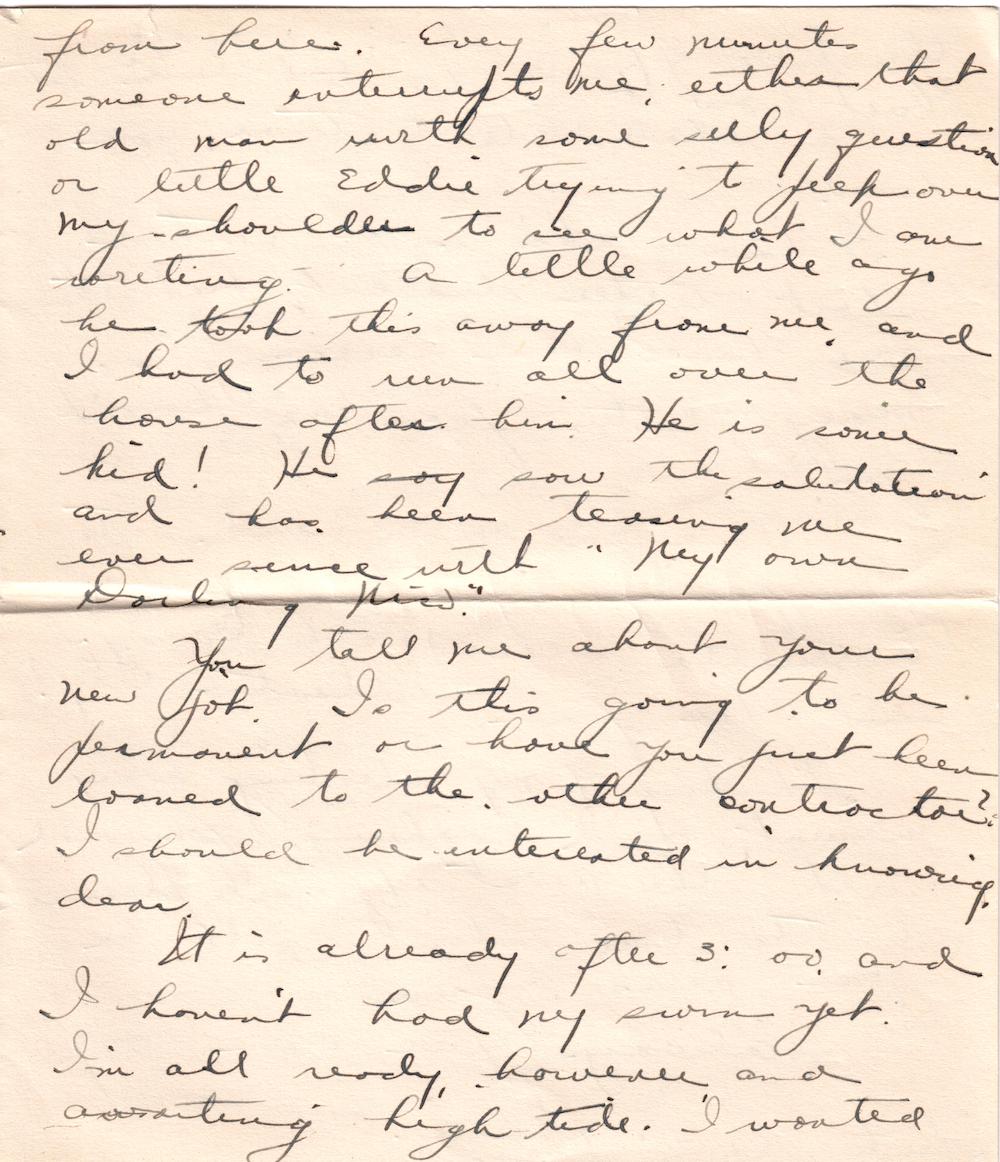 from here. Every few minutes
someone interrupts me, either that
old man with some silly question
or little Eddie trying to peep over
my shoulder to see what I am
writing. A little while ago
he took this away from me, and
I had to run all over the
house after him. He is some
kid! He say saw the salutation
and has been teasing me
ever since with "My own
Darling
You tell me about your
new job. Is this going to be
permanent or have you just been
loaned to the other contractor?
I should be interested in knowing,
dear.
It is already after 3:00, and
I haven't had my swim yet.
I'm all ready, however, and
awaiting high tide. I wanted